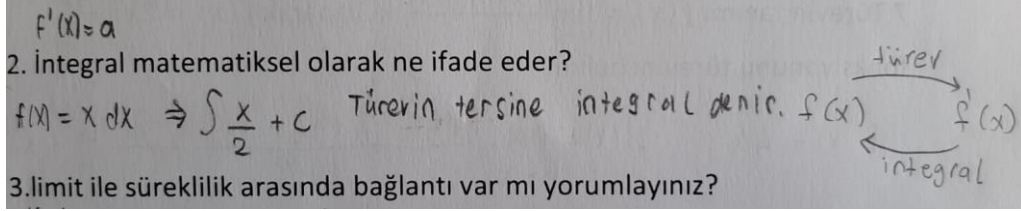 f'(x)=a
2. İntegral matematiksel olarak ne ifade eder?
türev
f(x) = x dx ⇒ ∫ x/2 + c Türevin tersine integral denir. f(x) f'(x)
integral
3.limit ile süreklilik arasında bağlantı var mı yorumlayınız?